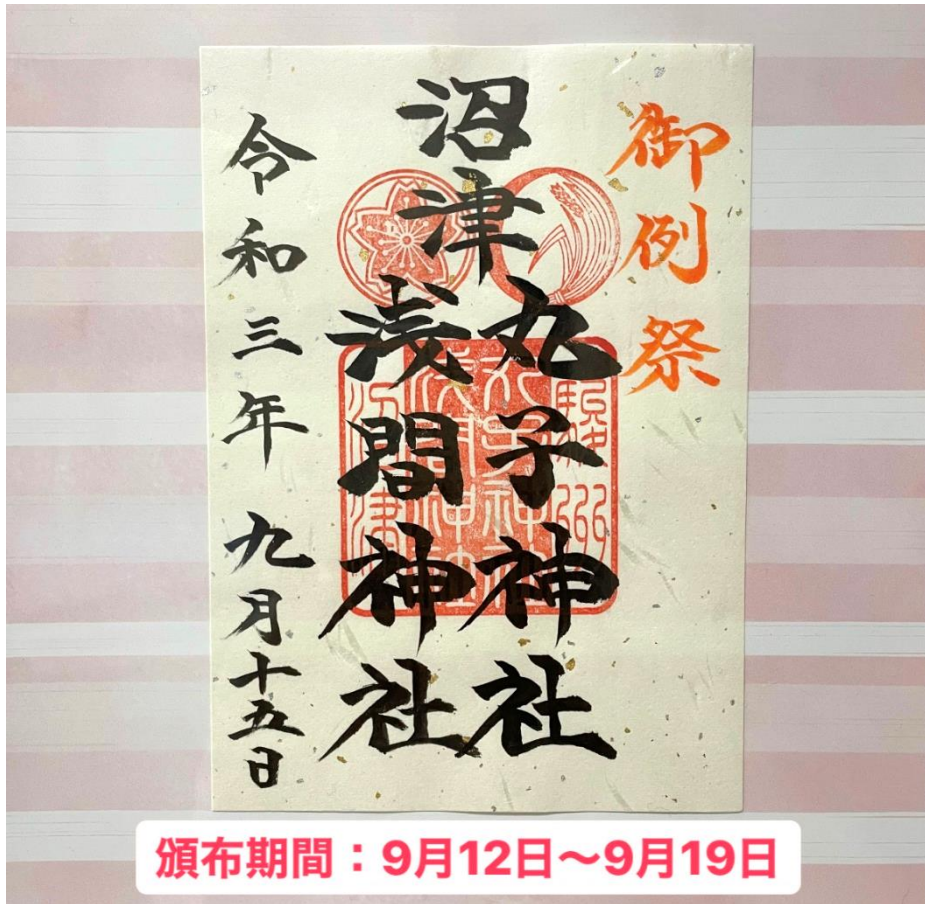 御例祭
沼津
丸子神社
浅間神社
令和三年 九月十五日
頒布期間：9月12日～9月19日